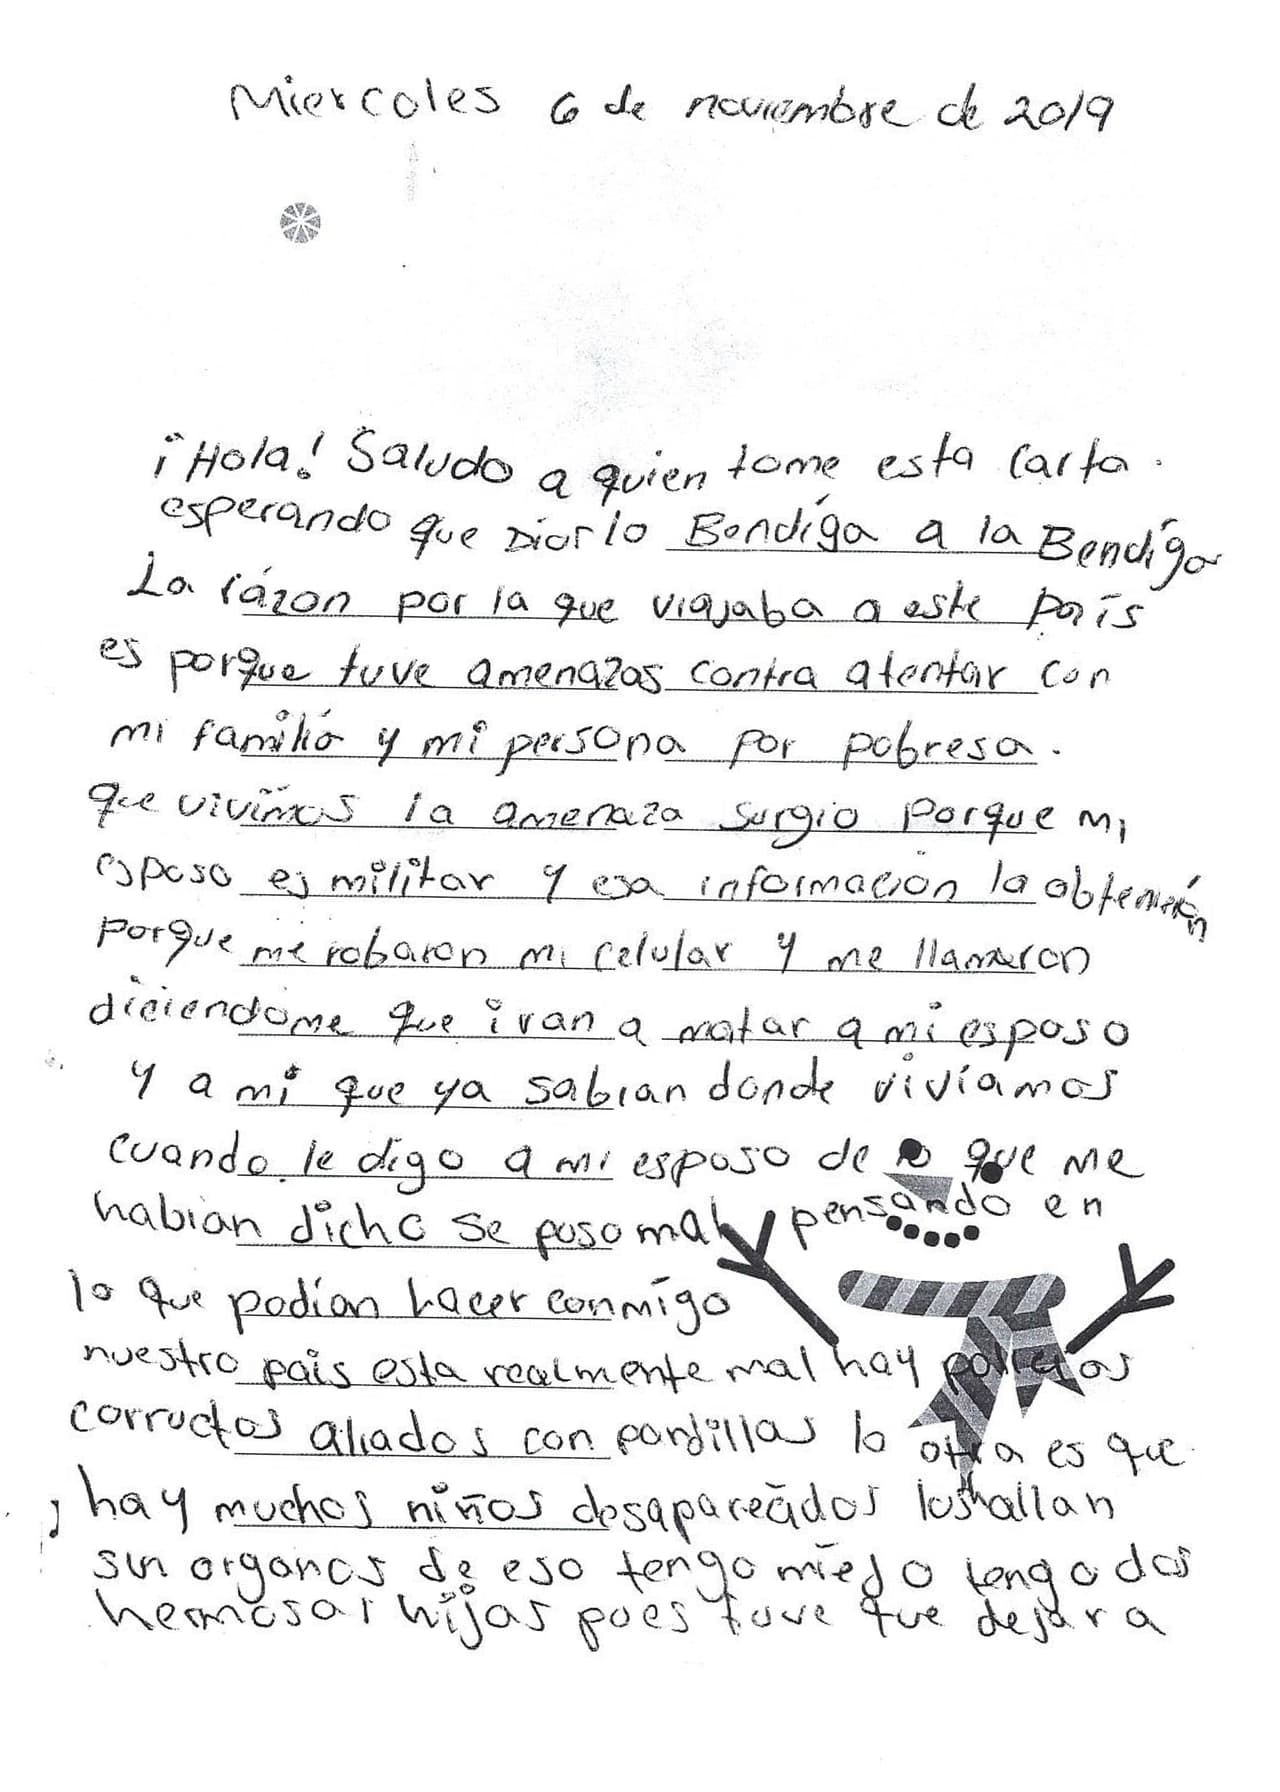 Miercoles 6 de noviembre de 2019
¡Hola! Saludo a quien tome esta carta.
esperando que Dios lo Bendíga a la Bendíga
La rázon por la que viajaba a este país
es porque tuve amenazas contra atentar con
mi familia y mi persona por pobresa.
que vivimos la amenaza surgio porque mi
esposo es militar y esa informacion la obtenien
porque me robaron mi celular y me llamaron
diciendome que ivan a matar a mi esposo
y a mi que ya sabian donde vivíamos
cuando le digo a mi esposo de lo que me
habian dicho se puso mal y pensando en
lo que podian hacer conmigo
nuestro pais esta realmente mal hay policias
corructos aliados con pandillas lo otra es que
hay muchos niños desapareados los hallan
sin organos de eso tengo miedo tengo dos
hermosas hijas pues tuve que dejar a